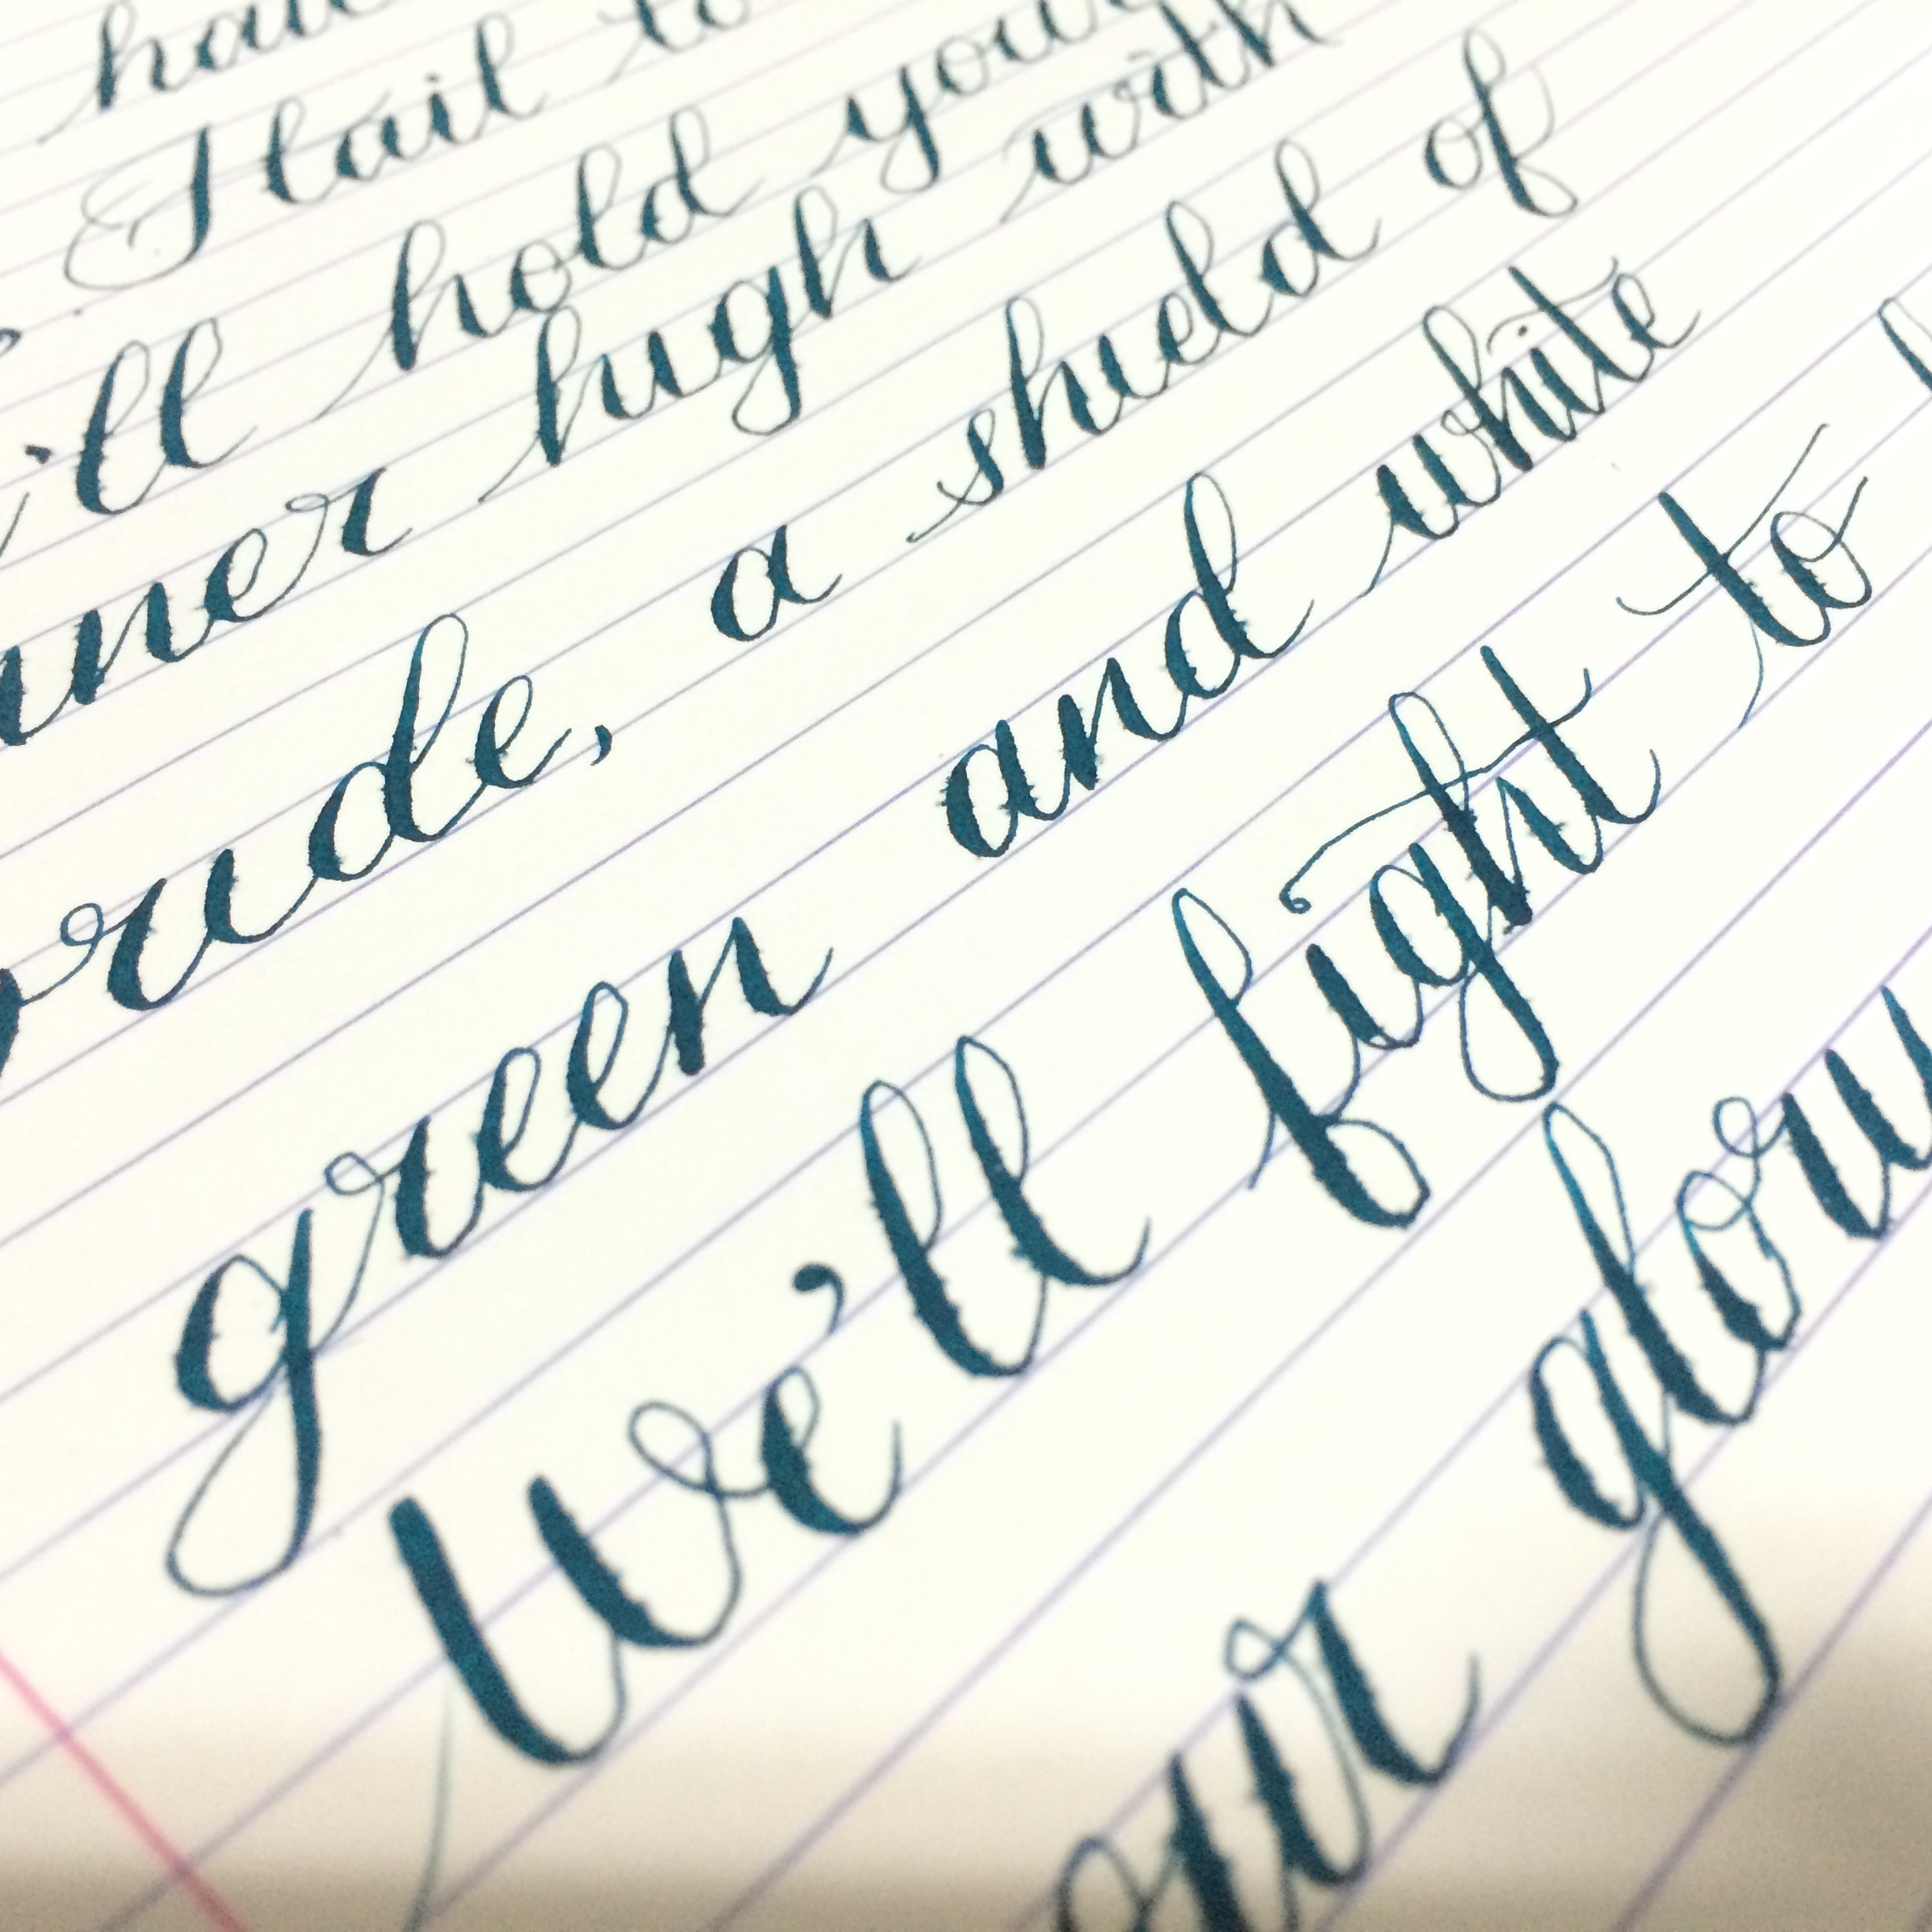 Hail to
hold your
high with
pride, a shield of
green and white
We'll fight to
our glory